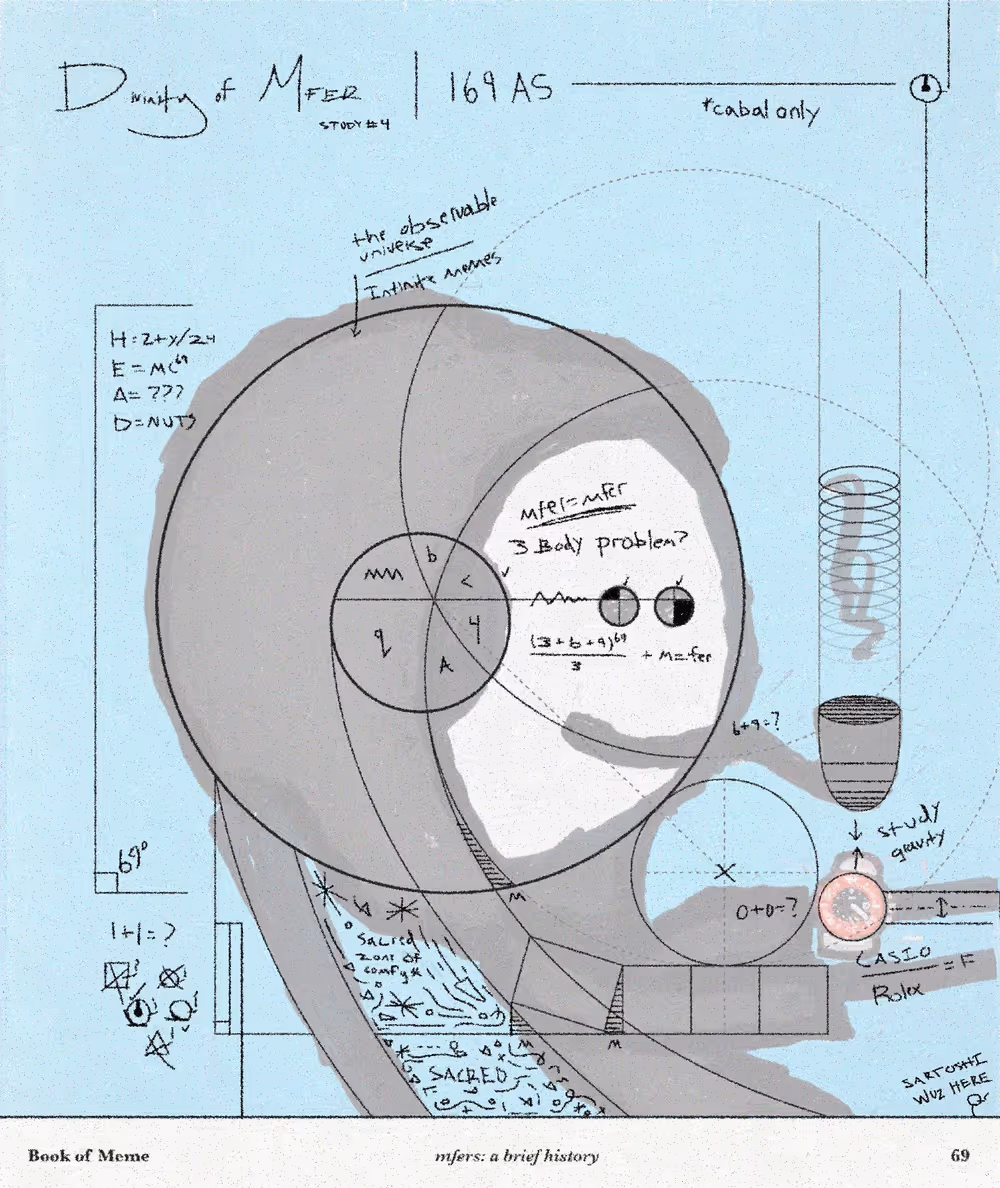 Divinity of MFER | 169 AS
STUDY #4
*cabal only
the observable
universe
Infinite memes
H=2+y/24
E=MC⁶⁹
A=???
D=NUTS
mfer=mfer
3 Body problem?
b
<
q
4
A
(3+6+9)⁶⁹
3
+ M=fer
6+9=?
study
gravity
69°
M
0+0=?
1+1=?
Sacred
zone of
comfy
CASIO
Rolex
=F
M
M
SACRED
SARTOSHI
WUZ HERE
Book of Meme
mfers: a brief history
69